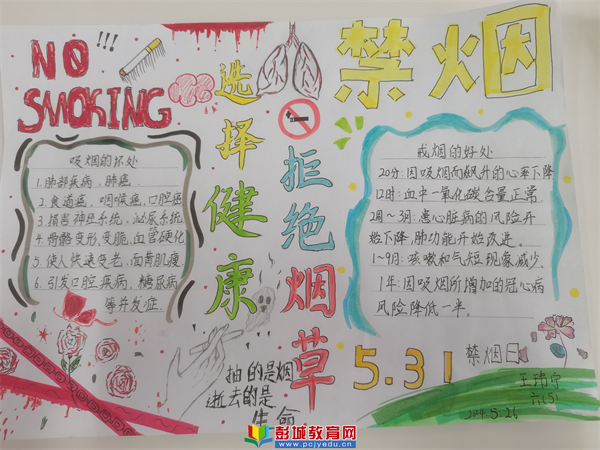 NO !!!
SMOKING
禁烟
选择健康
拒绝烟草
吸烟的坏处
1.肺部疾病,肺癌.
2.食道癌,咽喉癌,口腔癌
3.损害神经系统,泌尿系统
4.骨骼变形,变脆,血管硬化
5.使人快速变老,面黄肌瘦
6.引发口腔疾病,糖尿病
等并发症.
戒烟的好处
20分:因吸烟而飙升的心率下降
12时:血中一氧化碳含量正常.
2周~3月:患心脏病的风险开
始下降,肺功能开始改进.
1~9月:咳嗽和气短现象减少.
1年:因吸烟所增加的冠心病
风险降低一半.
抽的是烟
逝去的是
生命
5.31
禁烟日
六(5)
5.26
彭城教育网
www.pcjyedu.cn